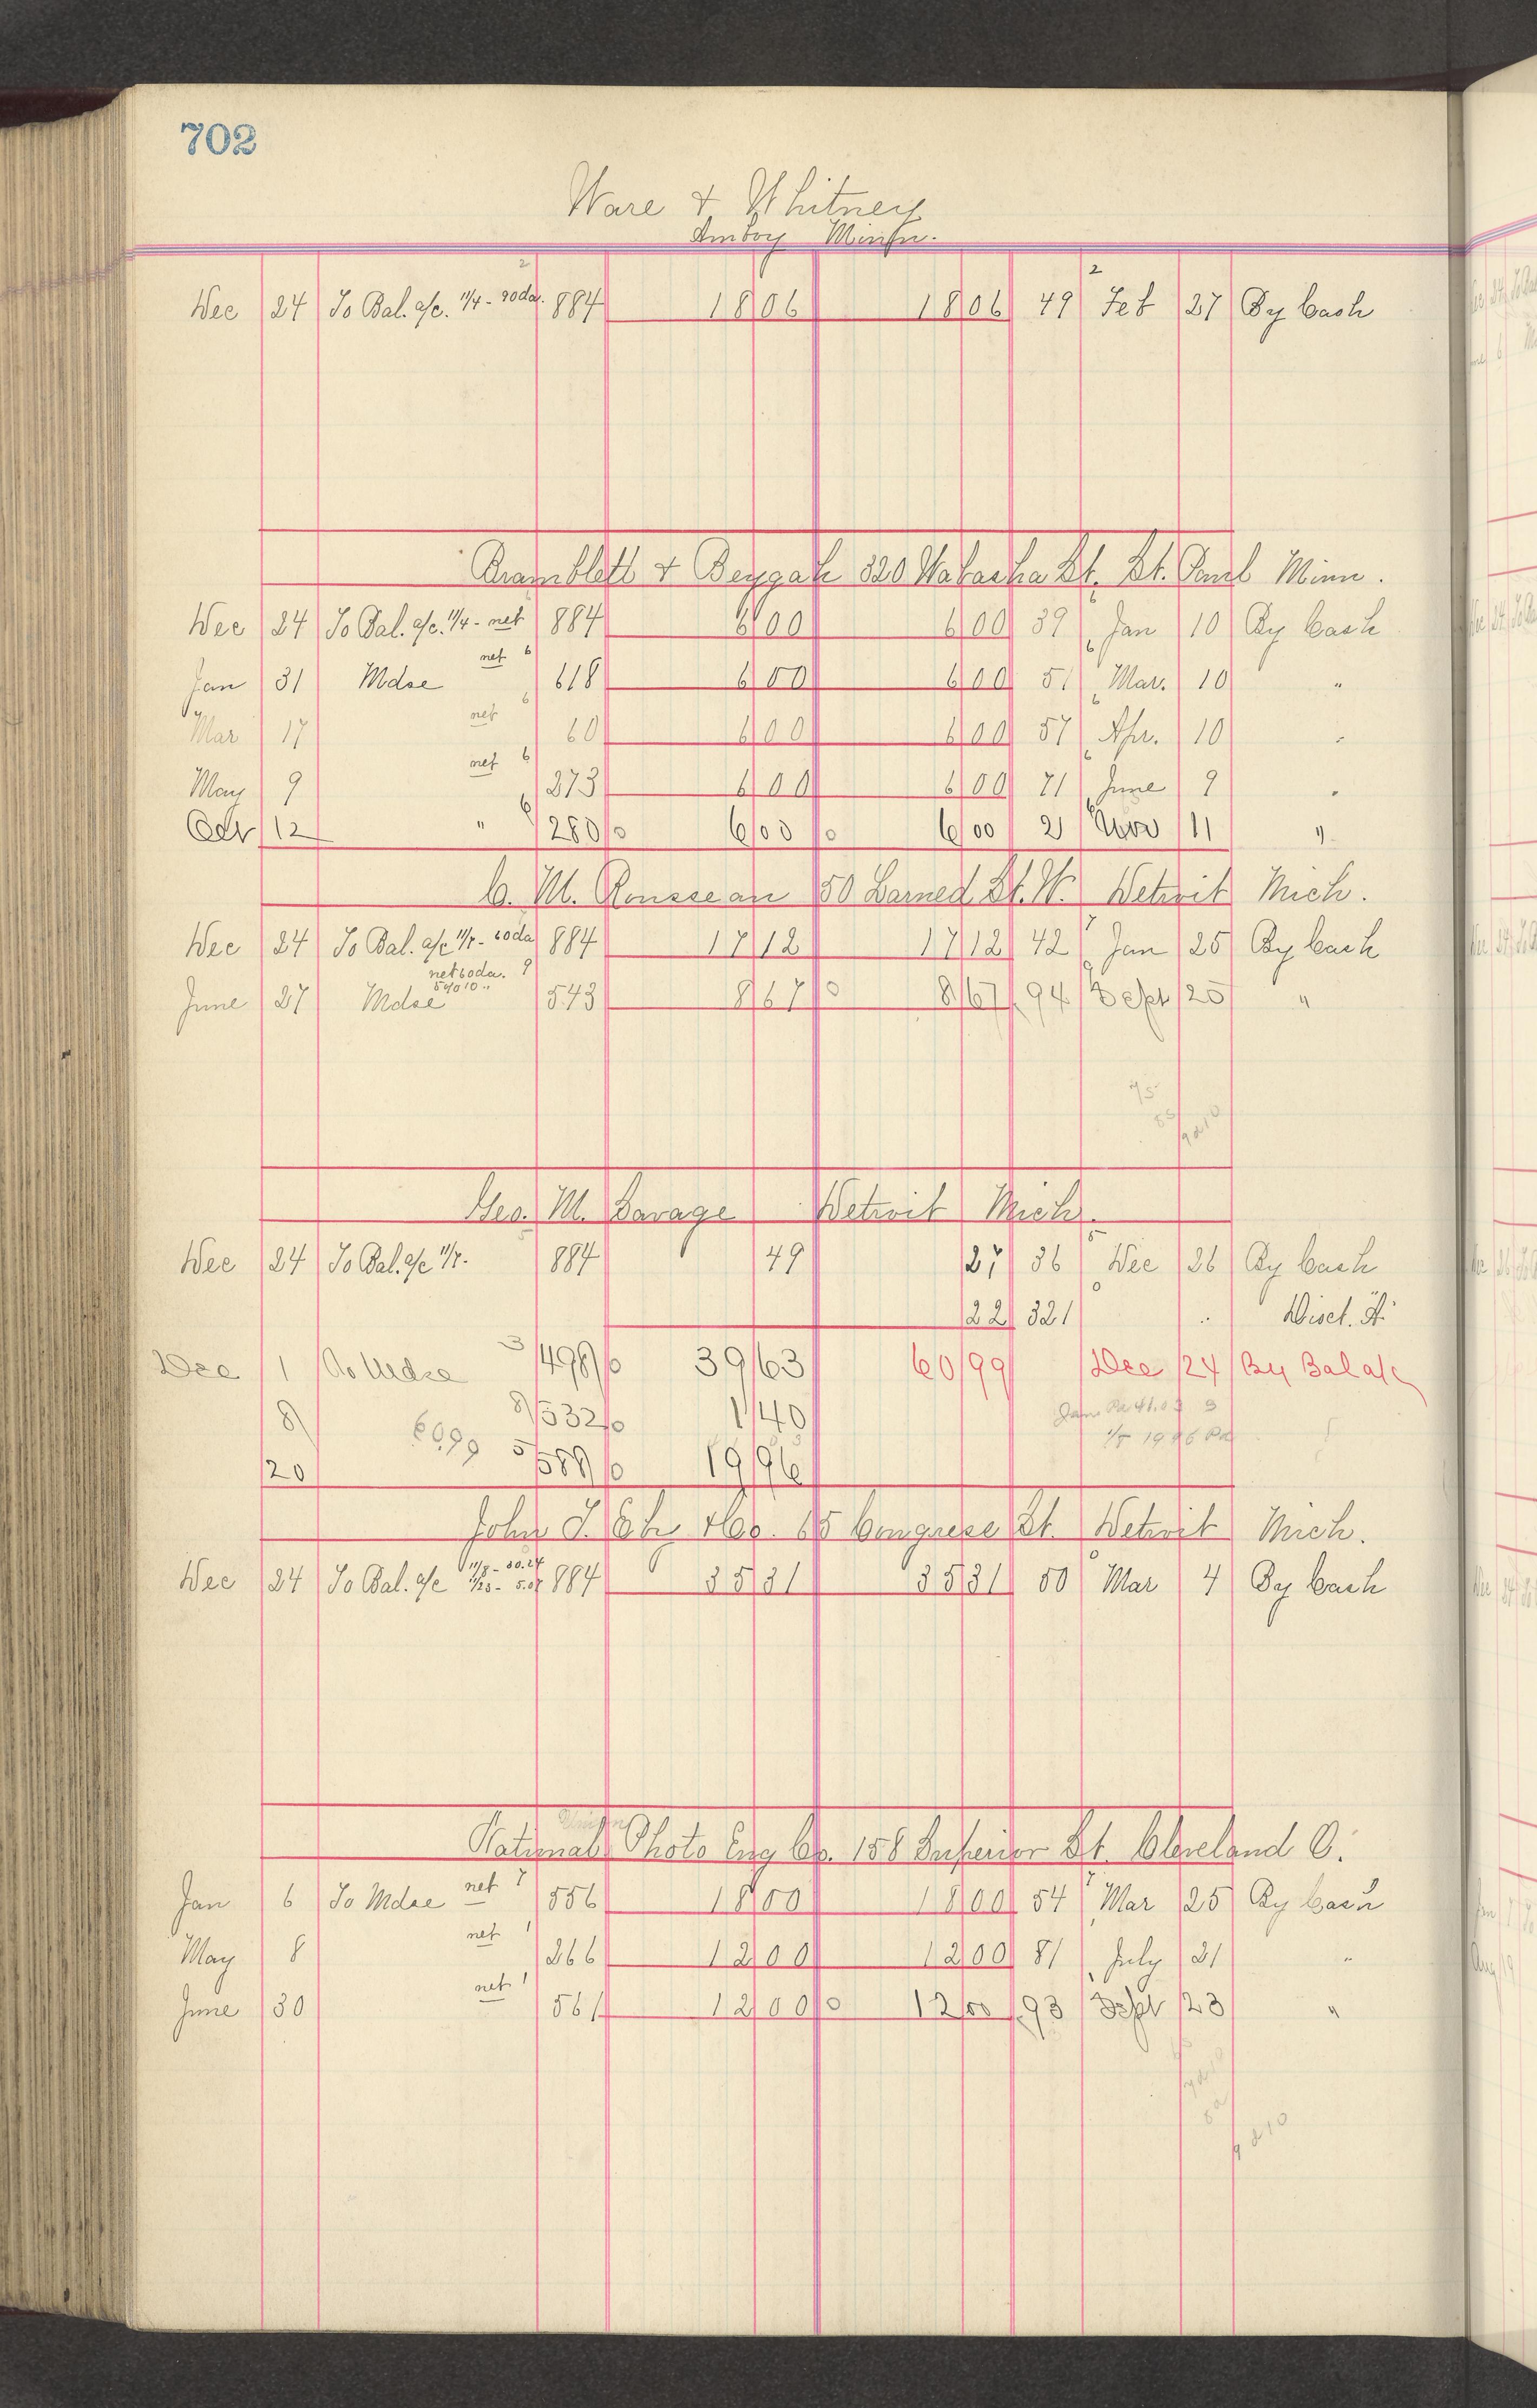 702
Ware & Whitney
Amboy Minn.
Dec 24 To Bal. a/c. 11/4 - 90 da. 2 884 18 06 18 06 49 2 Feb 27 By Cash
Bramblett & Beygeh 320 Wabasha St. St. Paul Minn.
Dec 24 To Bal. a/c. 11/4 - net 884 6 00 6 00 39 Jan 10 By Cash
Jan 31 Mdse net 6 618 6 00 6 00 51 6 Mar. 10 "
Mar 17 net 6 60 6 00 6 00 57 6 Apr. 10 "
May 9 net 6 273 6 00 6 00 71 6 June 9 "
Oct 12 " 6 280 6 00 6 00 2 6 Nov 11 "
C. M. Rousseau 50 Larned St. W. Detroit Mich.
Dec 24 To Bal. a/c 11/7 - 60 da 884 17 12 17 12 42 7 Jan 25 By Cash
June 27 Mdse net 60 da. 9 5% 10 " 543 8 67 8 67 94 9 Sept 25 "
Geo. M. Savage Detroit Mich.
Dec 24 To Bal. a/c 11/7. 884 49 27 36 5 Dec 26 By Cash
22 321 0 " Disct. "A"
Dec 1 To Mdse 3 498 39 63 60 99 Dec 24 By Bal a/c
8 8 532 1 40
60.99
20 5 589 19 96
John J. & Co. 65 Congress St. Detroit Mich.
Dec 24 To Bal. a/c 11/8 - 30.24 11/25 - 5.07 884 35 31 35 31 50 0 Mar 4 By Cash
National Photo Eng Co. 156 Superior St. Cleveland O.
Jan 6 To Mdse net 7 556 18 00 18 00 54 7 Mar 25 By Cash
May 8 net 1 266 12 00 12 00 81 1 July 21 "
June 30 net 1 561 12 00 12 00 93 Sept 23 "
9 d 10